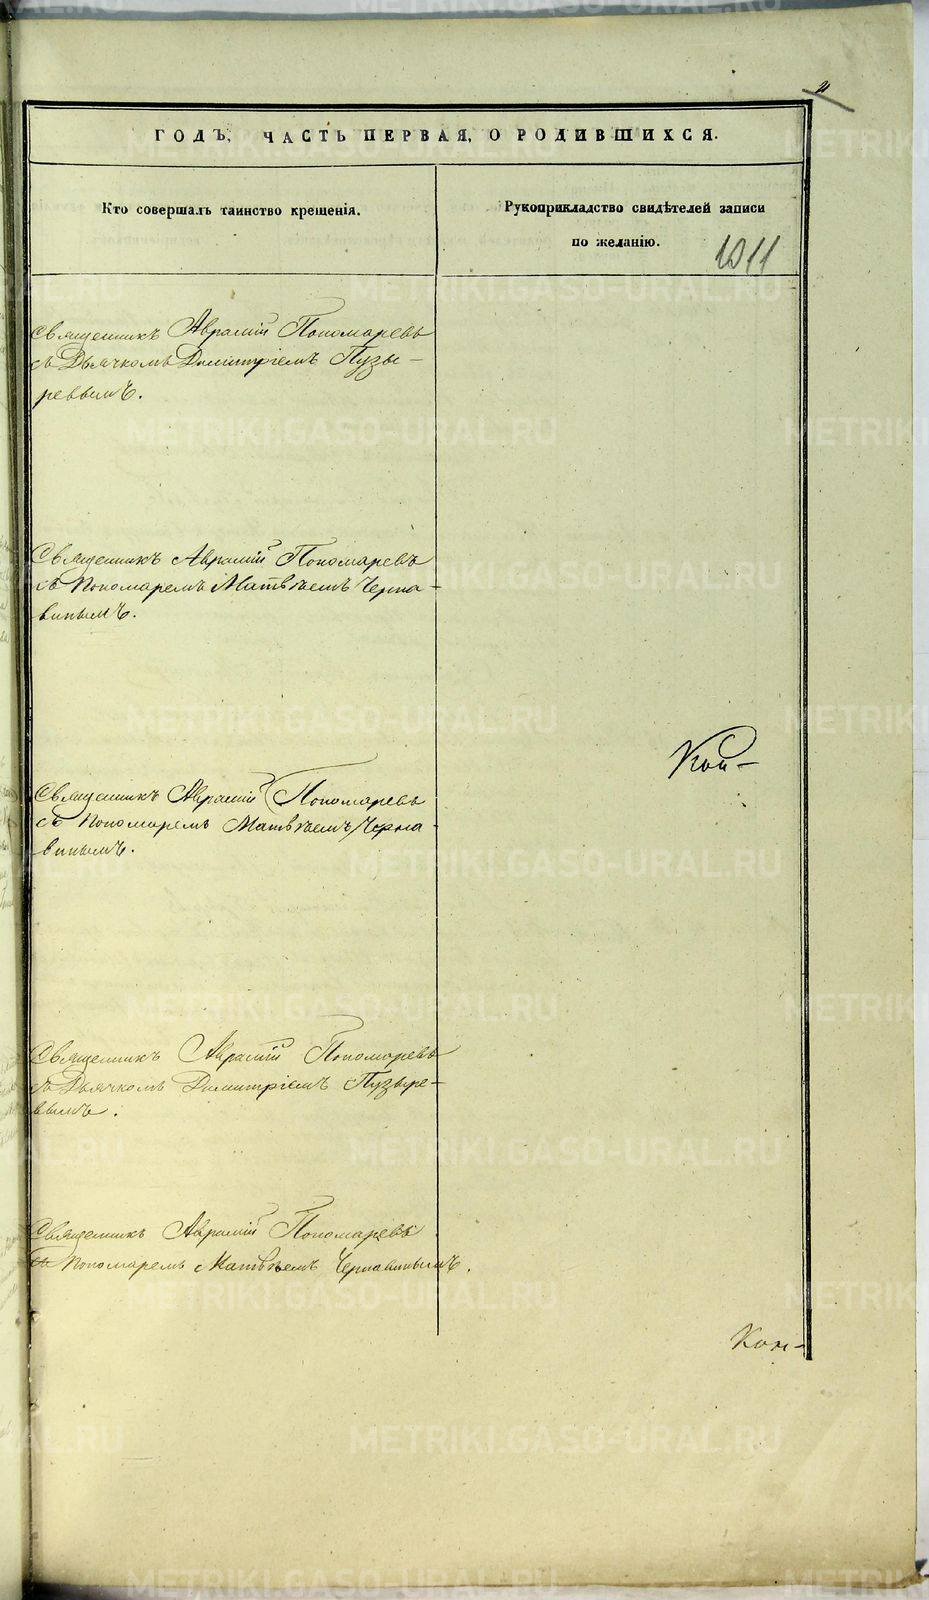 ГОДЪ, ЧАСТЬ ПЕРВАЯ, О РОДИВШИХСЯ.
Кто совершалъ таинство крещенія.
Рукоприкладство свидѣтелей записи
по желанію.
1011
Священникъ Аврамій Пономаревъ
съ Дьячкомъ Димитріемъ Пузы-
ревымъ.
Священникъ Аврамій Пономаревъ
съ Пономаремъ Матвѣемъ Черна-
винымъ.
Кон-
Священникъ Аврамій Пономаревъ
съ Пономаремъ Матвѣемъ Черна-
винымъ.
Священникъ Аврамій Пономаревъ
съ Дьячкомъ Димитріемъ Пузыре-
вымъ.
Священникъ Аврамій Пономаревъ
съ Пономаремъ Матвѣемъ Чернавинымъ.
Кон-
METRIKI.GASO-URAL.RU